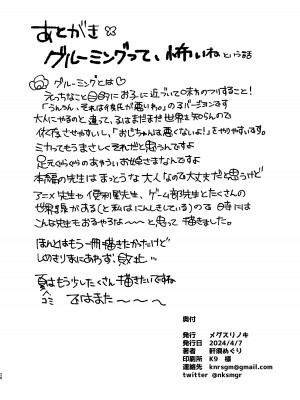 あとがき
グルーミングって、怖いね という話
グルーミングとは♡
えっちなこと目的にお子に近づいて味方のフリすること!
「うんうん、それは彼氏が悪いね」のるバージョンです
大人にやるのと違って、るはまだまだ世界も知らんので
依存させやすいし、「おじちゃんは悪くないよ!」をやりやすいです。
ミカってもうまさしくそれだと思うんですよ
足元ぐらぐらのあやういお姫さまなんですよ
本編の先生はまっとうな大人なので大丈夫だと思うけど
アニメ先生や便利屋先生、ゲーム部先生とたくさんの
世界線がある(と私はにんしきしている)ので 時には
こんな先生もおるやろな〜〜〜と思って描きました。
ほんとはもう一冊描きたかったけど
しめきりまにあわず、敗北…
夏コミはもう少したくさん描きたいですね
ではまた〜〜〜
奥付
発行 メグスリノキ
発行日 2024/4/7
著者 軒須めぐり
印刷所 K9 様
連絡先 knrsgm@gmail.com
twitter @nksmgr